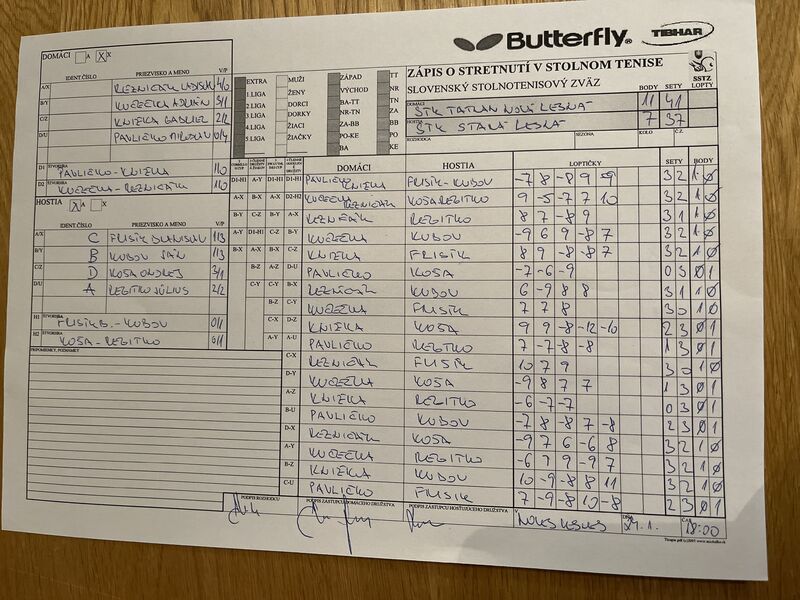 Butterfly® TIBHAR
DOMÁCI A X X
ZÁPIS O STRETNUTÍ V STOLNOM TENISE
SLOVENSKÝ STOLNOTENISOVÝ ZVÄZ
SSTZ
BODY SETY LOPTY
IDENT.ČÍSLO PRIEZVISKO A MENO V/P
A/X REZNIČÁK LADISLAV 4/0
B/Y KUČEČKA ADRIÁN 5/1
C/Z KNIEZKA GABRIEL 2/2
D/U PAVLIČKO MIROSLAV 0/4
EXTRA MUŽI ZÁPAD TT
1.LIGA ŽENY VÝCHOD NR
2.LIGA DORCI BA-TT TN
3.LIGA DORKY NR-TN ZA
4.LIGA ŽIACI ZA-BB BB
5.LIGA ŽIAČKY PO-KE PO
BA KE
DOMÁCI STK TATRAN NOVÁ LESNÁ 11 41
HOSTIA STK STARÁ LESNÁ 7 37
ROZHODCA SEZÓNA KOLO Č.Z.
D1 ŠTVORHRA PAVLIČKO - KNIEZKA 1/0
D2 ŠTVORHRA KUČEČKA - REZNIČÁK 1/0
HOSTIA X A X
IDENT.ČÍSLO PRIEZVISKO A MENO V/P
A/X C FRISÍK BRANISLAV 1/3
B/Y B KUBOV JÁN 1/3
C/Z D KOSA ONDREJ 3/1
D/U A REGITKO JÚLIUS 2/2
H1 ŠTVORHRA FRISÍK B. - KUBOV 0/1
H2 ŠTVORHRA KOSA - REGITKO 0/1
PRIPOMIENKY, PODNETY
DOMÁCI HOSTIA LOPTIČKY SETY BODY
D1-H1 A-Y D1-H1 D1-H1 PAVLIČKO KNIEZKA FRISÍK - KUBOV -7 8 -8 9 9 3 2 1 0
A-X B-X A-X D2-H2 KUČEČKA REZNIČÁK KOSA REGITKO 9 -5 -7 7 10 3 2 1 0
B-Y C-Z B-Y A-X REZNIČÁK REGITKO 8 7 -8 9 3 1 1 0
A-Y D1-H1 C-Z B-Y KUČEČKA KUBOV -9 6 9 -8 7 3 2 1 0
B-X A-X B-X C-Z KNIEZKA FRISÍK 8 9 -8 -8 7 3 2 1 0
B-Z A-Z D-U PAVLIČKO KOSA -7 -6 -9 0 3 0 1
C-Y C-Y B-X REZNIČÁK KUBOV 6 -9 8 8 3 1 1 0
B-Z C-Y KUČEČKA FRISÍK 7 7 8 3 0 1 0
C-X D-Z KNIEZKA KOSA 9 9 -8 -12 -10 2 3 0 1
A-Y A-U PAVLIČKO REGITKO 7 -7 -8 -8 1 3 0 1
C-X REZNIČÁK FRISÍK 10 7 9 3 0 1 0
D-Y KUČEČKA KOSA -9 8 7 7
A-Z KNIEZKA REGITKO -6 -7 -7 0 3 0 1
B-U PAVLIČKO KUBOV -7 8 -8 7 -8 2 3 0 1
D-X REZNIČÁK KOSA -9 7 6 -6 8 3 2 1 0
A-Y KUČEČKA REGITKO -6 7 9 -9 7 3 2 1 0
B-Z KNIEZKA KUBOV 10 -9 -8 8 11 3 2 1 0
C-U PAVLIČKO FRISÍK 7 -9 -8 10 -8 2 3 0 1
PODPIS ROZHODCU PODPIS ZÁSTUPCU DOMÁCEHO DRUŽSTVA PODPIS ZÁSTUPCU HOSŤUJÚCEHO DRUŽSTVA V DŇA ČAS 18:00